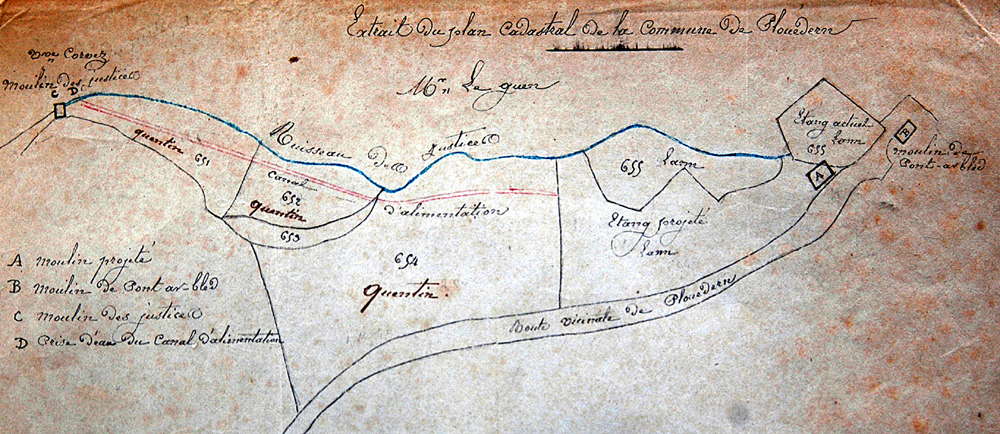 Extrait du plan Cadastral de la Commune de Plouédern
Vve Corvez
Moulin des justices
C D
Mr Le guen
quentin 651
Ruisseau des justices
canal d'alimentation
652
quentin
653
654
Quentin.
655 Lann
Etang projeté
Lann
Etang actuel
Lann
655
A
B
moulin de
Pont-ar-bled
Route vicinale de Plouédern
A moulin projeté
B moulin de Pont ar bled
C moulin des justices
D Prise d'eau du Canal d'alimentation